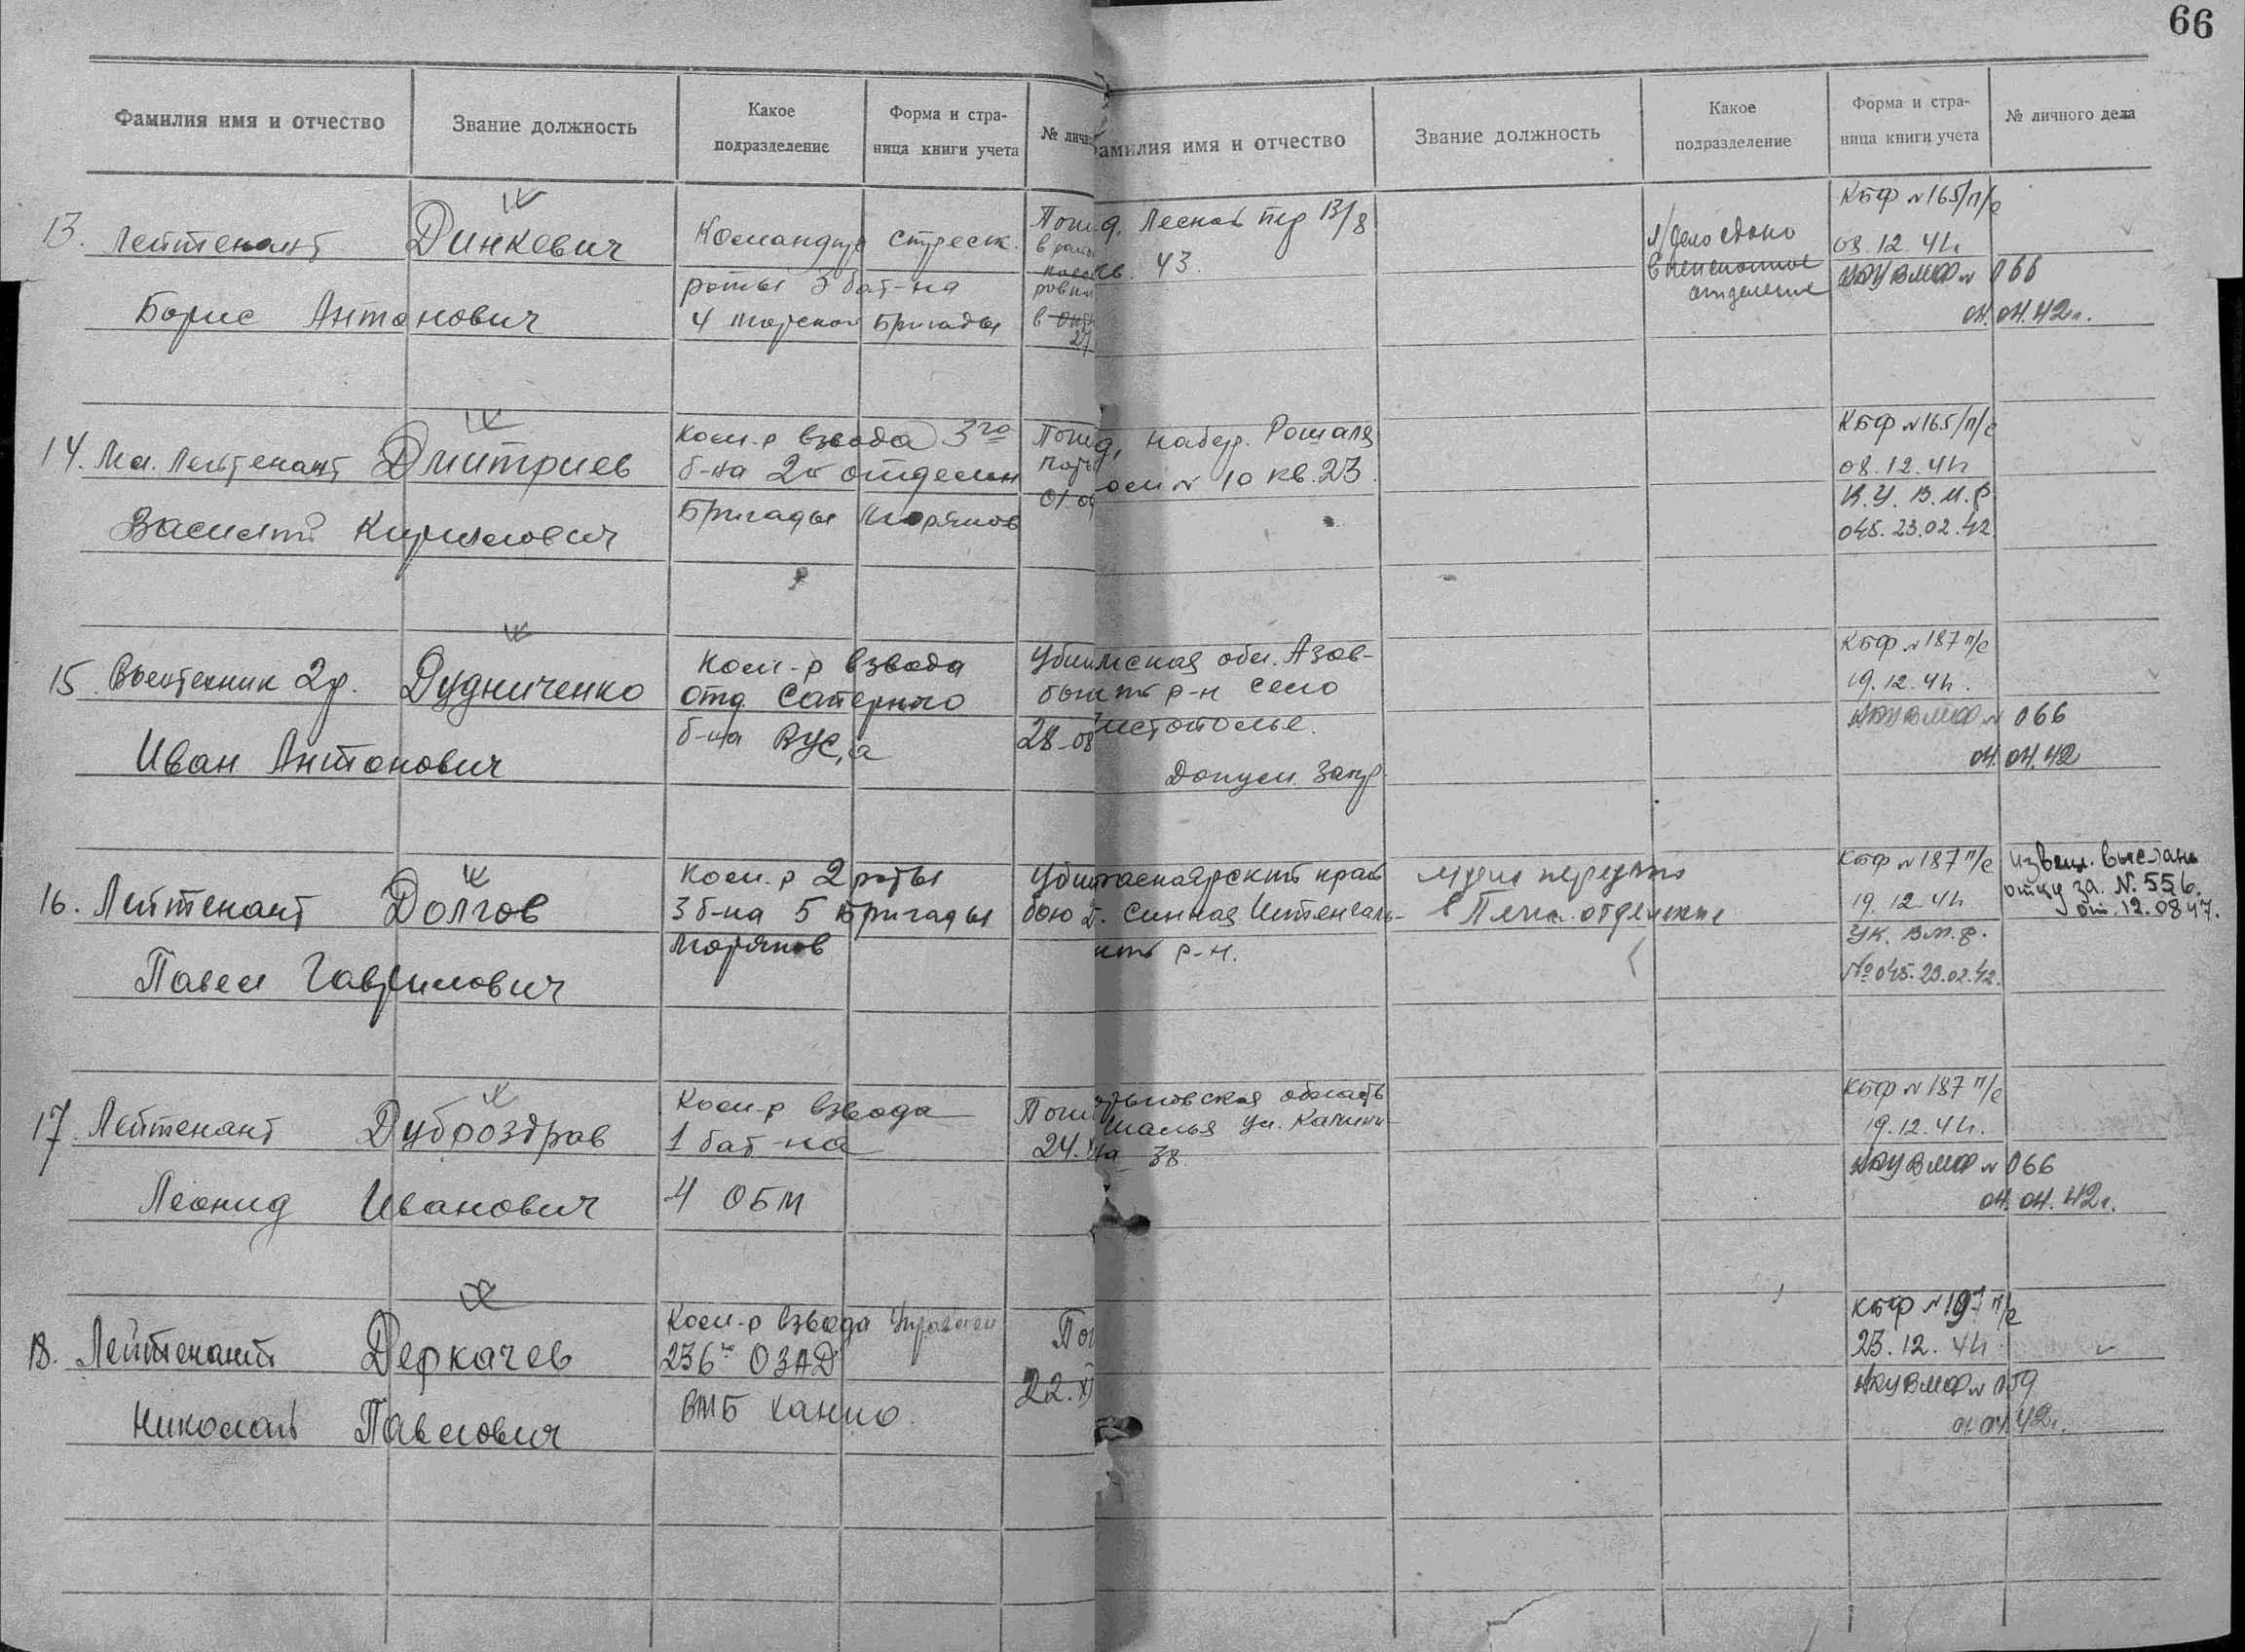 66
Фамилия имя и отчество
Звание должность
Какое подразделение
Форма и стра-
ница книги учета
№ личн
амилия имя и отчество
Звание должность
Какое подразделение
Форма и стра-
ница книги учета
№ личного дела
13. Лейтенант Динкевич
Борис Антонович
Командир
роты 3 бат-на
4 морской Бригады
Лесной пер 13/8
43.
л/дело сдано
в пенсионное
отделение
КБФ №165/п/с
08.12.41г
№ 066
04.04.42г.
14. Мл. Лейтенант Дмитриев
Василий Кириллович
Ком-р взвода 3го
б-на 2й отделен
Бригады Моряков
01.09
набер. Рошаля
дом № 10 кв. 23.
КБФ №165/п/с
08.12.41г
К.У.В.М.Ф
045. 23.02.42
15. Воентехник 2р. Дудниченко
Иван Антонович
Ком-р взвода
отд. Саперного
б-на
28-08
мская обл. Азов-
р-н село
истополье.
КБФ №187 п/с
19.12.41г.
№ 066
04.04.42
16. Лейтенант Долгов
Павел Гаврилович
Ком-р 2 роты
3 б-на 5 Бригады
моряков
бою
расноярский край
р-н.
л/дело передано
в Пенс. отделение
КБФ №187 п/с
19.12.41г
УК. ВМФ.
№045. 23.02.42.
Извещ. выслано
отцу за. N. 556.
от. 12.08.47.
17 Лейтенант Дуброздрав
Леонид Иванович
Ком-р взвода
1 бат-на
4 ОБМ
24.
рьковская область
Шалья ул. Калини-
на 38
КБФ №187 п/с
19.12.41г.
№ 066
04.04.42г.
18. Лейтенант Деркачев
Николай Павлович
Ком-р взвода Управлен
236й ОЗАД
ВМБ Ханко.
22.XI
КБФ №197 п/с
23.12.41г
№ 059
04.42г.